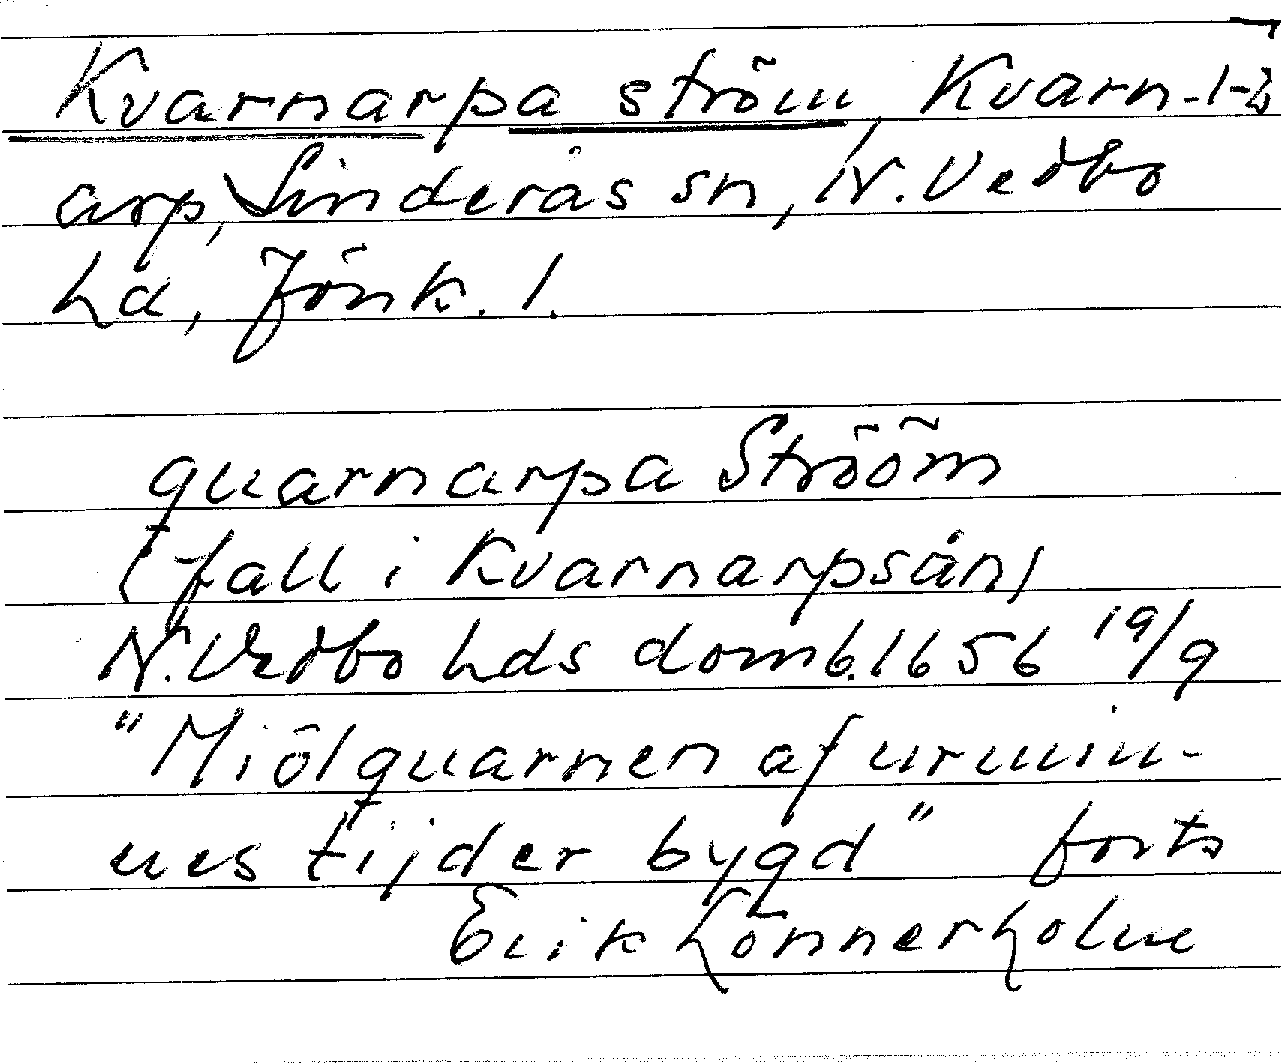 Kvarnarpa ström, Kvarn- 1-2
arp, Linderås sn, N. Vedbo
hd, Jönk. l.
quarnarpa Strööm
(fall i Kvarnarpsån)
N. Vedbo hds domb. 1656 19/9
"Miölquarnen af urmin-
nes tijder bygd" forts
Erik Lönnerholm